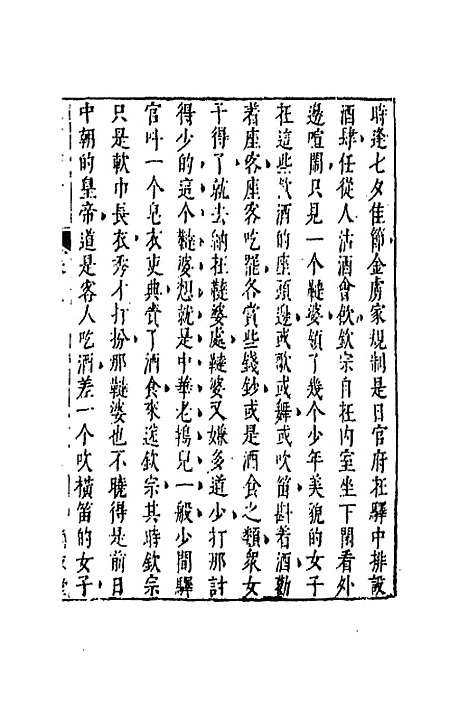 時逢七夕佳節金虜家規制是日官府在驛中排設
酒肆任從人沽酒會飲欽宗自在內室坐下閒看外
邊喧鬧只見一个韃婆領了幾个少年美貌的女子
在這些飲酒的座頭邊或歌或舞或吹笛斟着酒勸
着座客座客吃罷各賞些錢鈔或是酒食之類眾女
子得了就去納在韃婆處韃婆又嫌多道少打那討
得少的這个韃婆想就是中華老鴇兒一般少間驛
官叫一个皂衣吏典賫了酒食來送欽宗其時欽宗
只是軟巾長衣秀才打扮那韃婆也不曉得是前日
中朝的皇帝道是客人吃酒差一个吹橫笛的女子